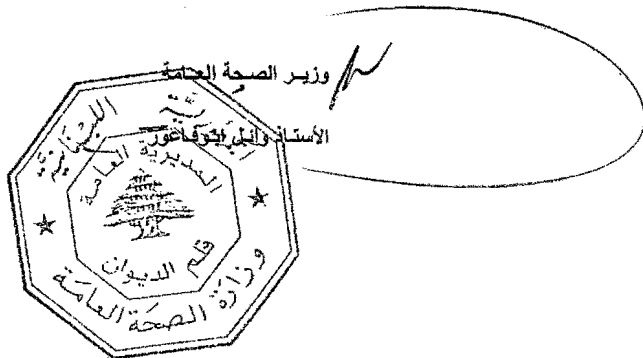 وزير الصحة العامة
الأستاذ وائل ابوفاعور
الجمهورية اللبنانية
المديرية العامة
قلم الديوان
وزارة الصحة العامة